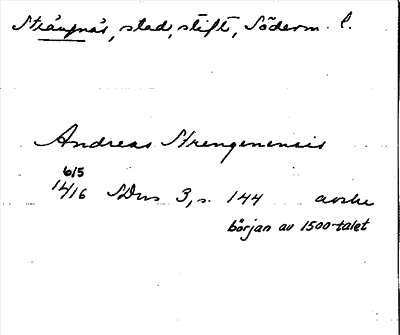 Strängnäs, stad, stift, Söderm. l.
Andreas Strengenensis
6/5
1416 SDns 3, s. 144 avskr
början av 1500-talet